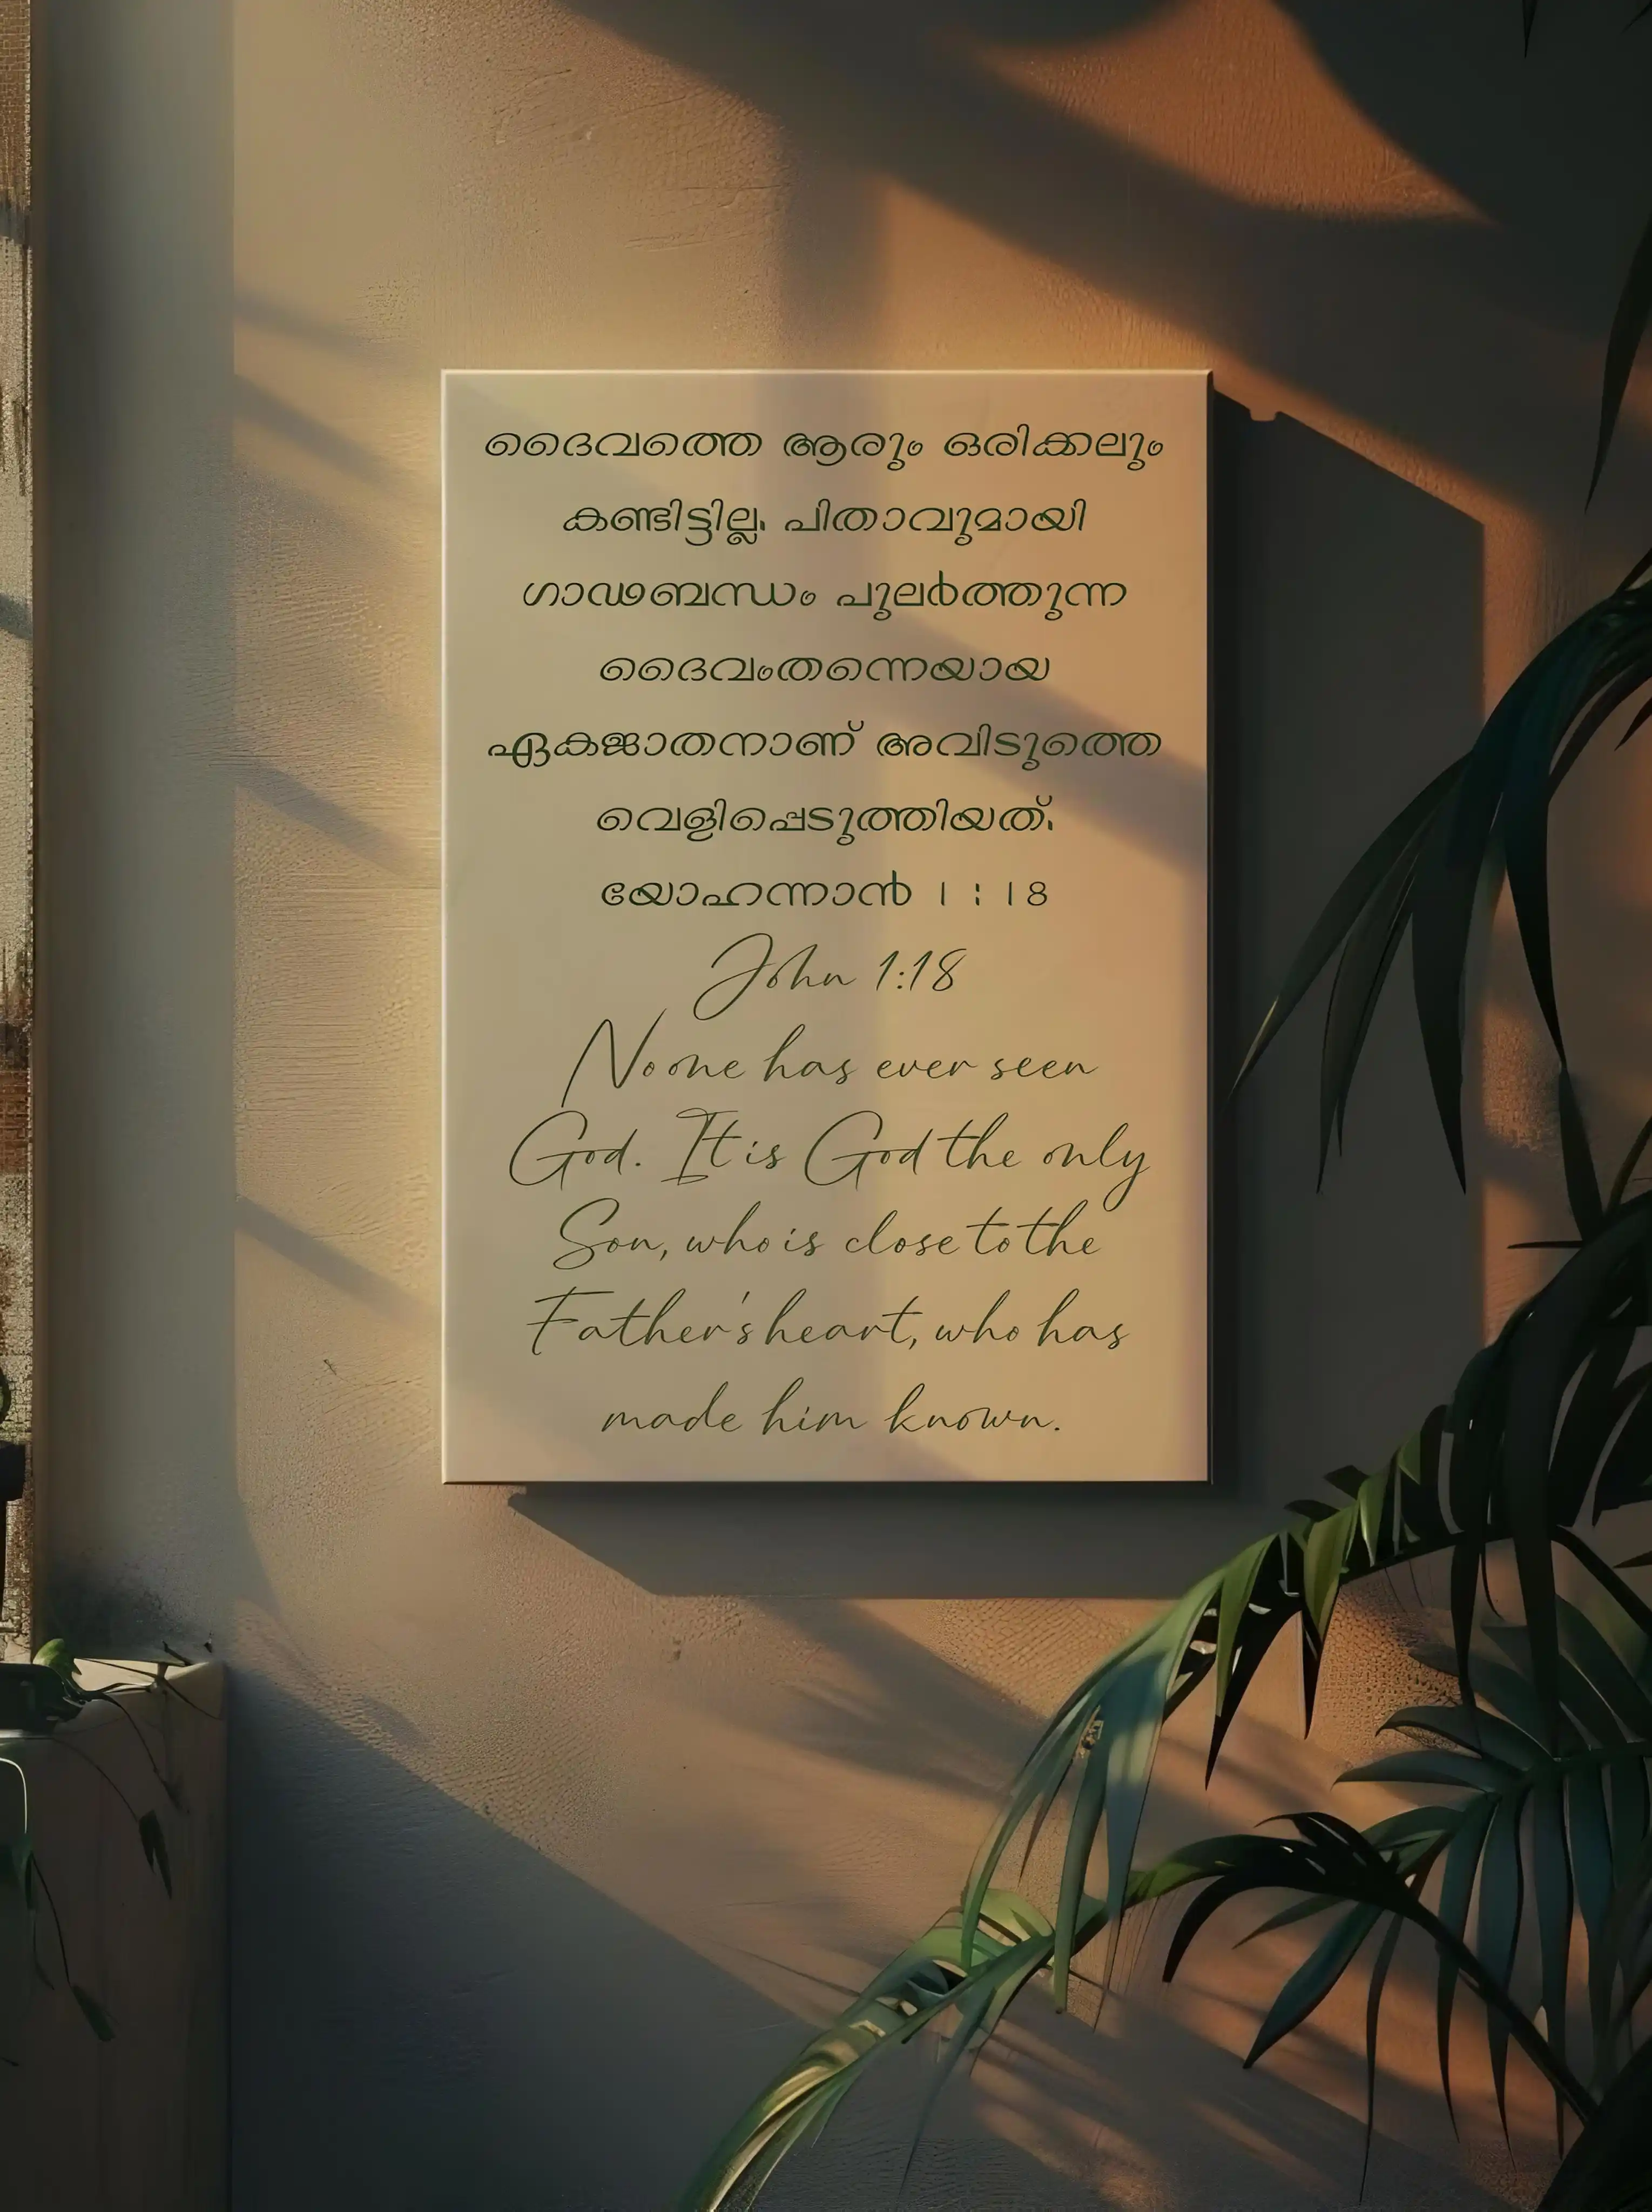 ദൈവത്തെ ആരും ഒരിക്കലും
കണ്ടിട്ടില്ല. പിതാവുമായി
ഗാഢബന്ധം പുലർത്തുന്ന
ദൈവംതന്നെയായ
ഏകജാതനാണ് അവിടുത്തെ
വെളിപ്പെടുത്തിയത്.
യോഹന്നാൻ 1 : 18
John 1:18
No one has ever seen
God. It is God the only
Son, who is close to the
Father's heart, who has
made him known.